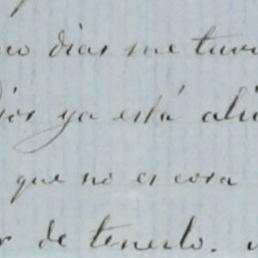 dias me tuv
ya está ali
que no es cosa
r de tenerlo.